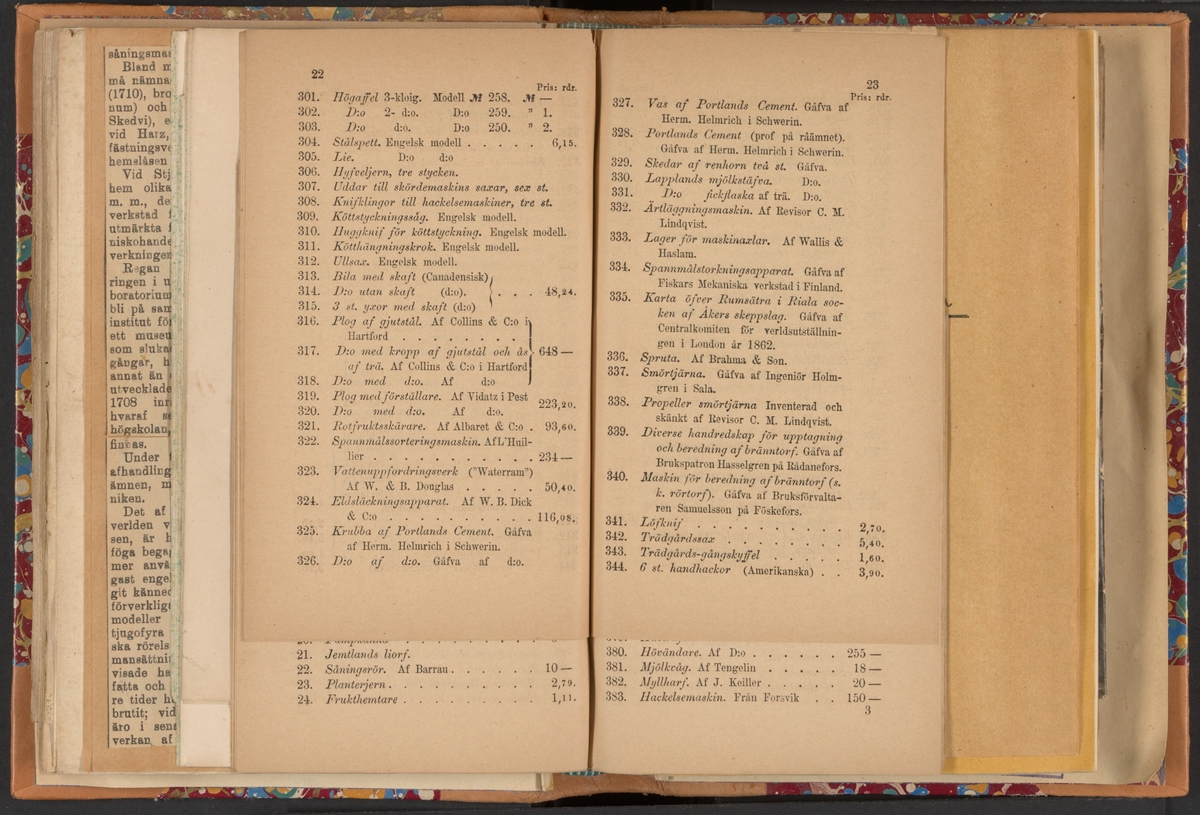 såningsma
Bland
må nämna
(1710), bro
num) och
Skedvi), e
vid Harz,
fästningsve
hemslåsen
Vid Stj
hem olika
m. m., de
verkstad
utmärkta
niskohande
verkningen
Regan
ringen i u
boratorium
bli på sam
institut för
ett museu
som sluka
gångar, h
annat än
utvecklade
1708 inr
hvaraf s
högskolan,
finnas.
Under
afhandling
ämnen, m
niken.
Det af
verlden v
sen, är h
föga bega
mer anvä
gast engel
git känned
förverklig
modeller
tjugofyra
ska rörels
mansättnin
visade ha
fatta och
re tider h
brutit; vid
äro i sens
verkan af
22
Pris: rdr.
301. Högaffel 3-kloig. Modell № 258. № —
302. D:o 2- d:o. D:o 259. " 1.
303. D:o d:o. D:o 250. " 2.
304. Stålspett. Engelsk modell . . . . . 6,15.
305. Lie. D:o d:o
306. Hyfveljern, tre stycken.
307. Uddar till skördemaskins saxar, sex st.
308. Knifklingor till hackelsemaskiner, tre st.
309. Köttstyckningssåg. Engelsk modell.
310. Huggknif för köttstyckning. Engelsk modell.
311. Kötthängningskrok. Engelsk modell.
312. Ullsax. Engelsk modell.
313. Bila med skaft (Canadensisk)
314. D:o utan skaft (d:o). . . . 48,24.
315. 3 st. yxor med skaft (d:o)
316. Plog af gjutstål. Af Collins & C:o i
Hartford . . . . . . . .
317. D:o med kropp af gjutstål och ås 648 —
af trä. Af Collins & C:o i Hartford
318. D:o med d:o. Af d:o
319. Plog med förställare. Af Vidatz i Pest
223,20.
320. D:o med d:o. Af d:o.
321. Rotfruktsskärare. Af Albaret & C:o . 93,60.
322. Spannmålssorteringsmaskin. Af L'Huil-
lier . . . . . . . . . . . 234 —
323. Vattenuppfordringsverk ("Waterram")
Af W. & B. Douglas . . . . . 50,40.
324. Eldsläckningsapparat. Af W. B. Dick
& C:o . . . . . . . . . . 116,08.
325. Krubba af Portlands Cement. Gåfva
af Herm. Helmrich i Schwerin.
326. D:o af d:o. Gåfva af d:o.
21. Jemtlands liorf.
22. Såningsrör. Af Barrau . . . . . . 10 —
23. Planterjern . . . . . . . . . . 2,79.
24. Frukthemtare . . . . . . . . . 1,11.
23
Pris: rdr.
327. Vas af Portlands Cement. Gåfva af
Herm. Helmrich i Schwerin.
328. Portlands Cement (prof på råämnet).
Gåfva af Herm. Helmrich i Schwerin.
329. Skedar af renhorn två st. Gåfva.
330. Lapplands mjölkstäfva. D:o.
331. D:o fickflaska af trä. D:o.
332. Ärtläggningsmaskin. Af Revisor C. M.
Lindqvist.
333. Lager för maskinaxlar. Af Wallis &
Haslam.
334. Spannmålstorkningsapparat. Gåfva af
Fiskars Mekaniska verkstad i Finland.
335. Karta öfver Rumsätra i Riala soc-
ken af Åkers skeppslag. Gåfva af
Centralkomiten för verldsutställnin-
gen i London år 1862.
336. Spruta. Af Brahma & Son.
337. Smörtjärna. Gåfva af Ingeniör Holm-
gren i Sala.
338. Propeller smörtjärna Inventerad och
skänkt af Revisor C. M. Lindqvist.
339. Diverse handredskap för upptagning
och beredning af bränntorf. Gåfva af
Brukspatron Hasselgren på Rådanefors.
340. Maskin för beredning af bränntorf (s.
k. rörtorf). Gåfva af Bruksförvalta-
ren Samuelsson på Föskefors.
341. Löfknif . . . . . . . . . . 2,70.
342. Trädgårdssax . . . . . . . . 5,40.
343. Trädgårds-gångskyffel . . . . . 1,60.
344. 6 st. handhackor (Amerikanska) . . 3,90.
380. Hövändare. Af D:o . . . . . . 255 —
381. Mjölkvåg. Af Tengelin . . . . . 18 —
382. Myllharf. Af J. Keiller . . . . . 20 —
383. Hackelsemaskin. Från Forsvik . . 150 —
3